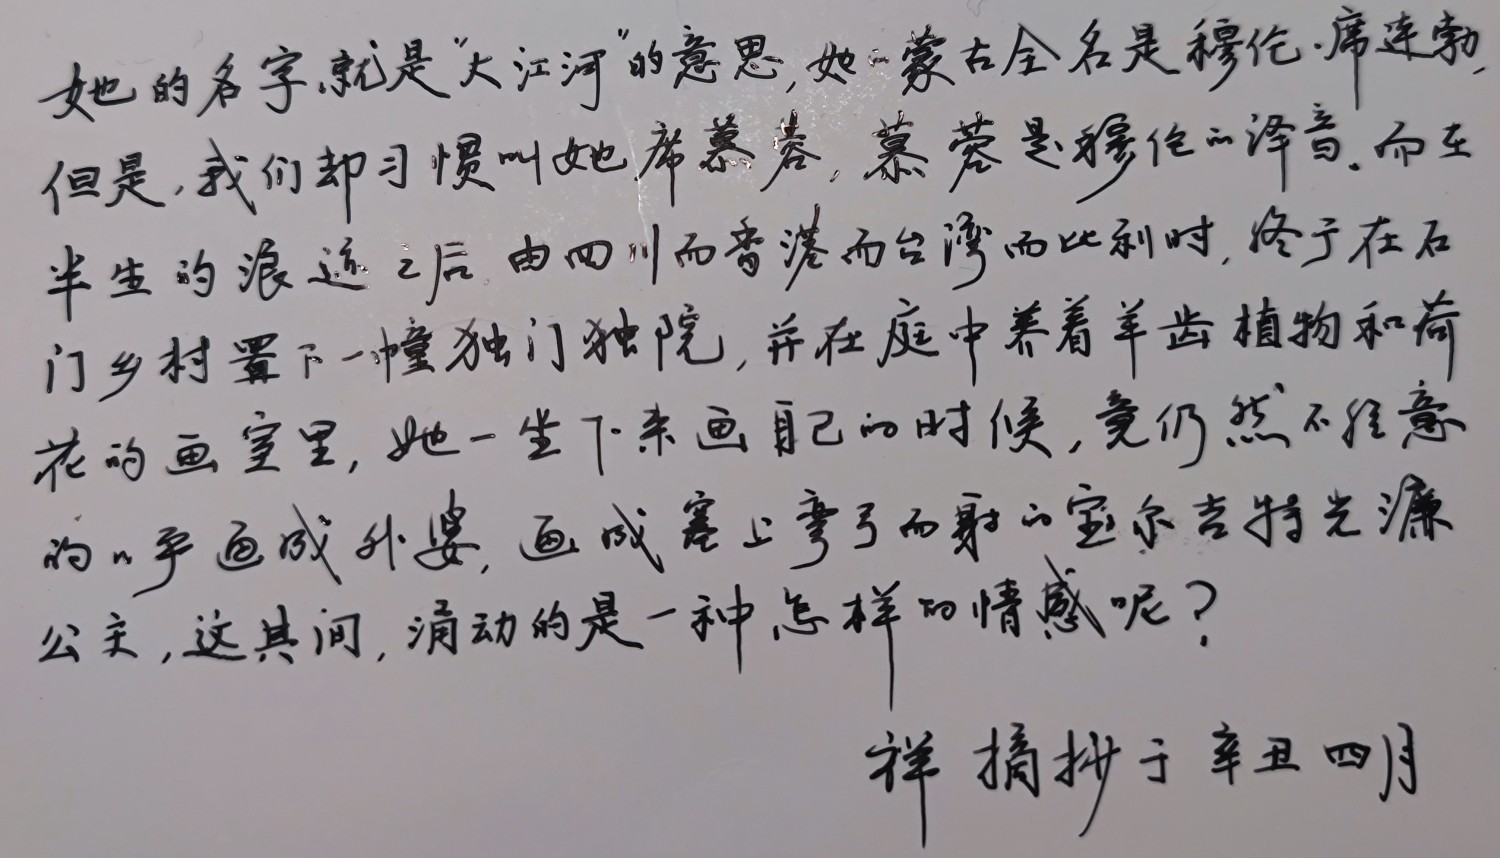 她的名字,就是“大江河”的意思,她的蒙古全名是穆伦·席连勃,
但是,我们却习惯叫她席慕蓉,慕蓉是穆伦的译音。而在
半生的浪迹之后,由四川而香港而台湾而比利时,终于在石
门乡村置下一幢独门独院,并在庭中养着羊齿植物和荷
花的画室里,她一坐下来画自己的时候,竟仍然不经意
的几乎画成外婆,画成塞上弯弓而射的宝尔吉特光濂
公主,这其间,涌动的是一种怎样的情感呢?
祥摘抄于辛丑四月